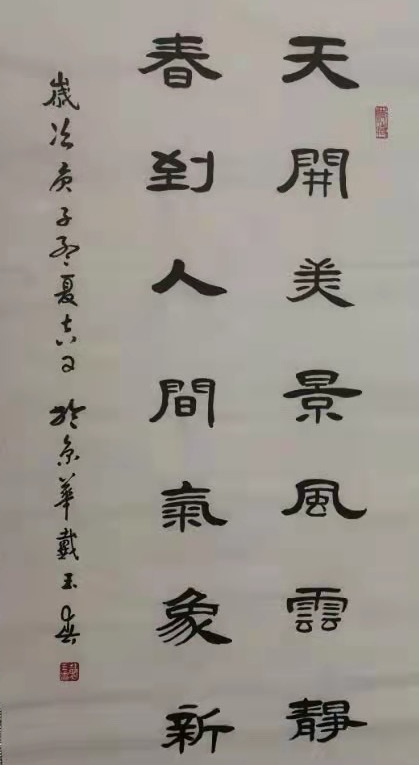 天開美景風雲靜
春到人間氣象新
歲次庚子孟夏吉日於京華戴玉